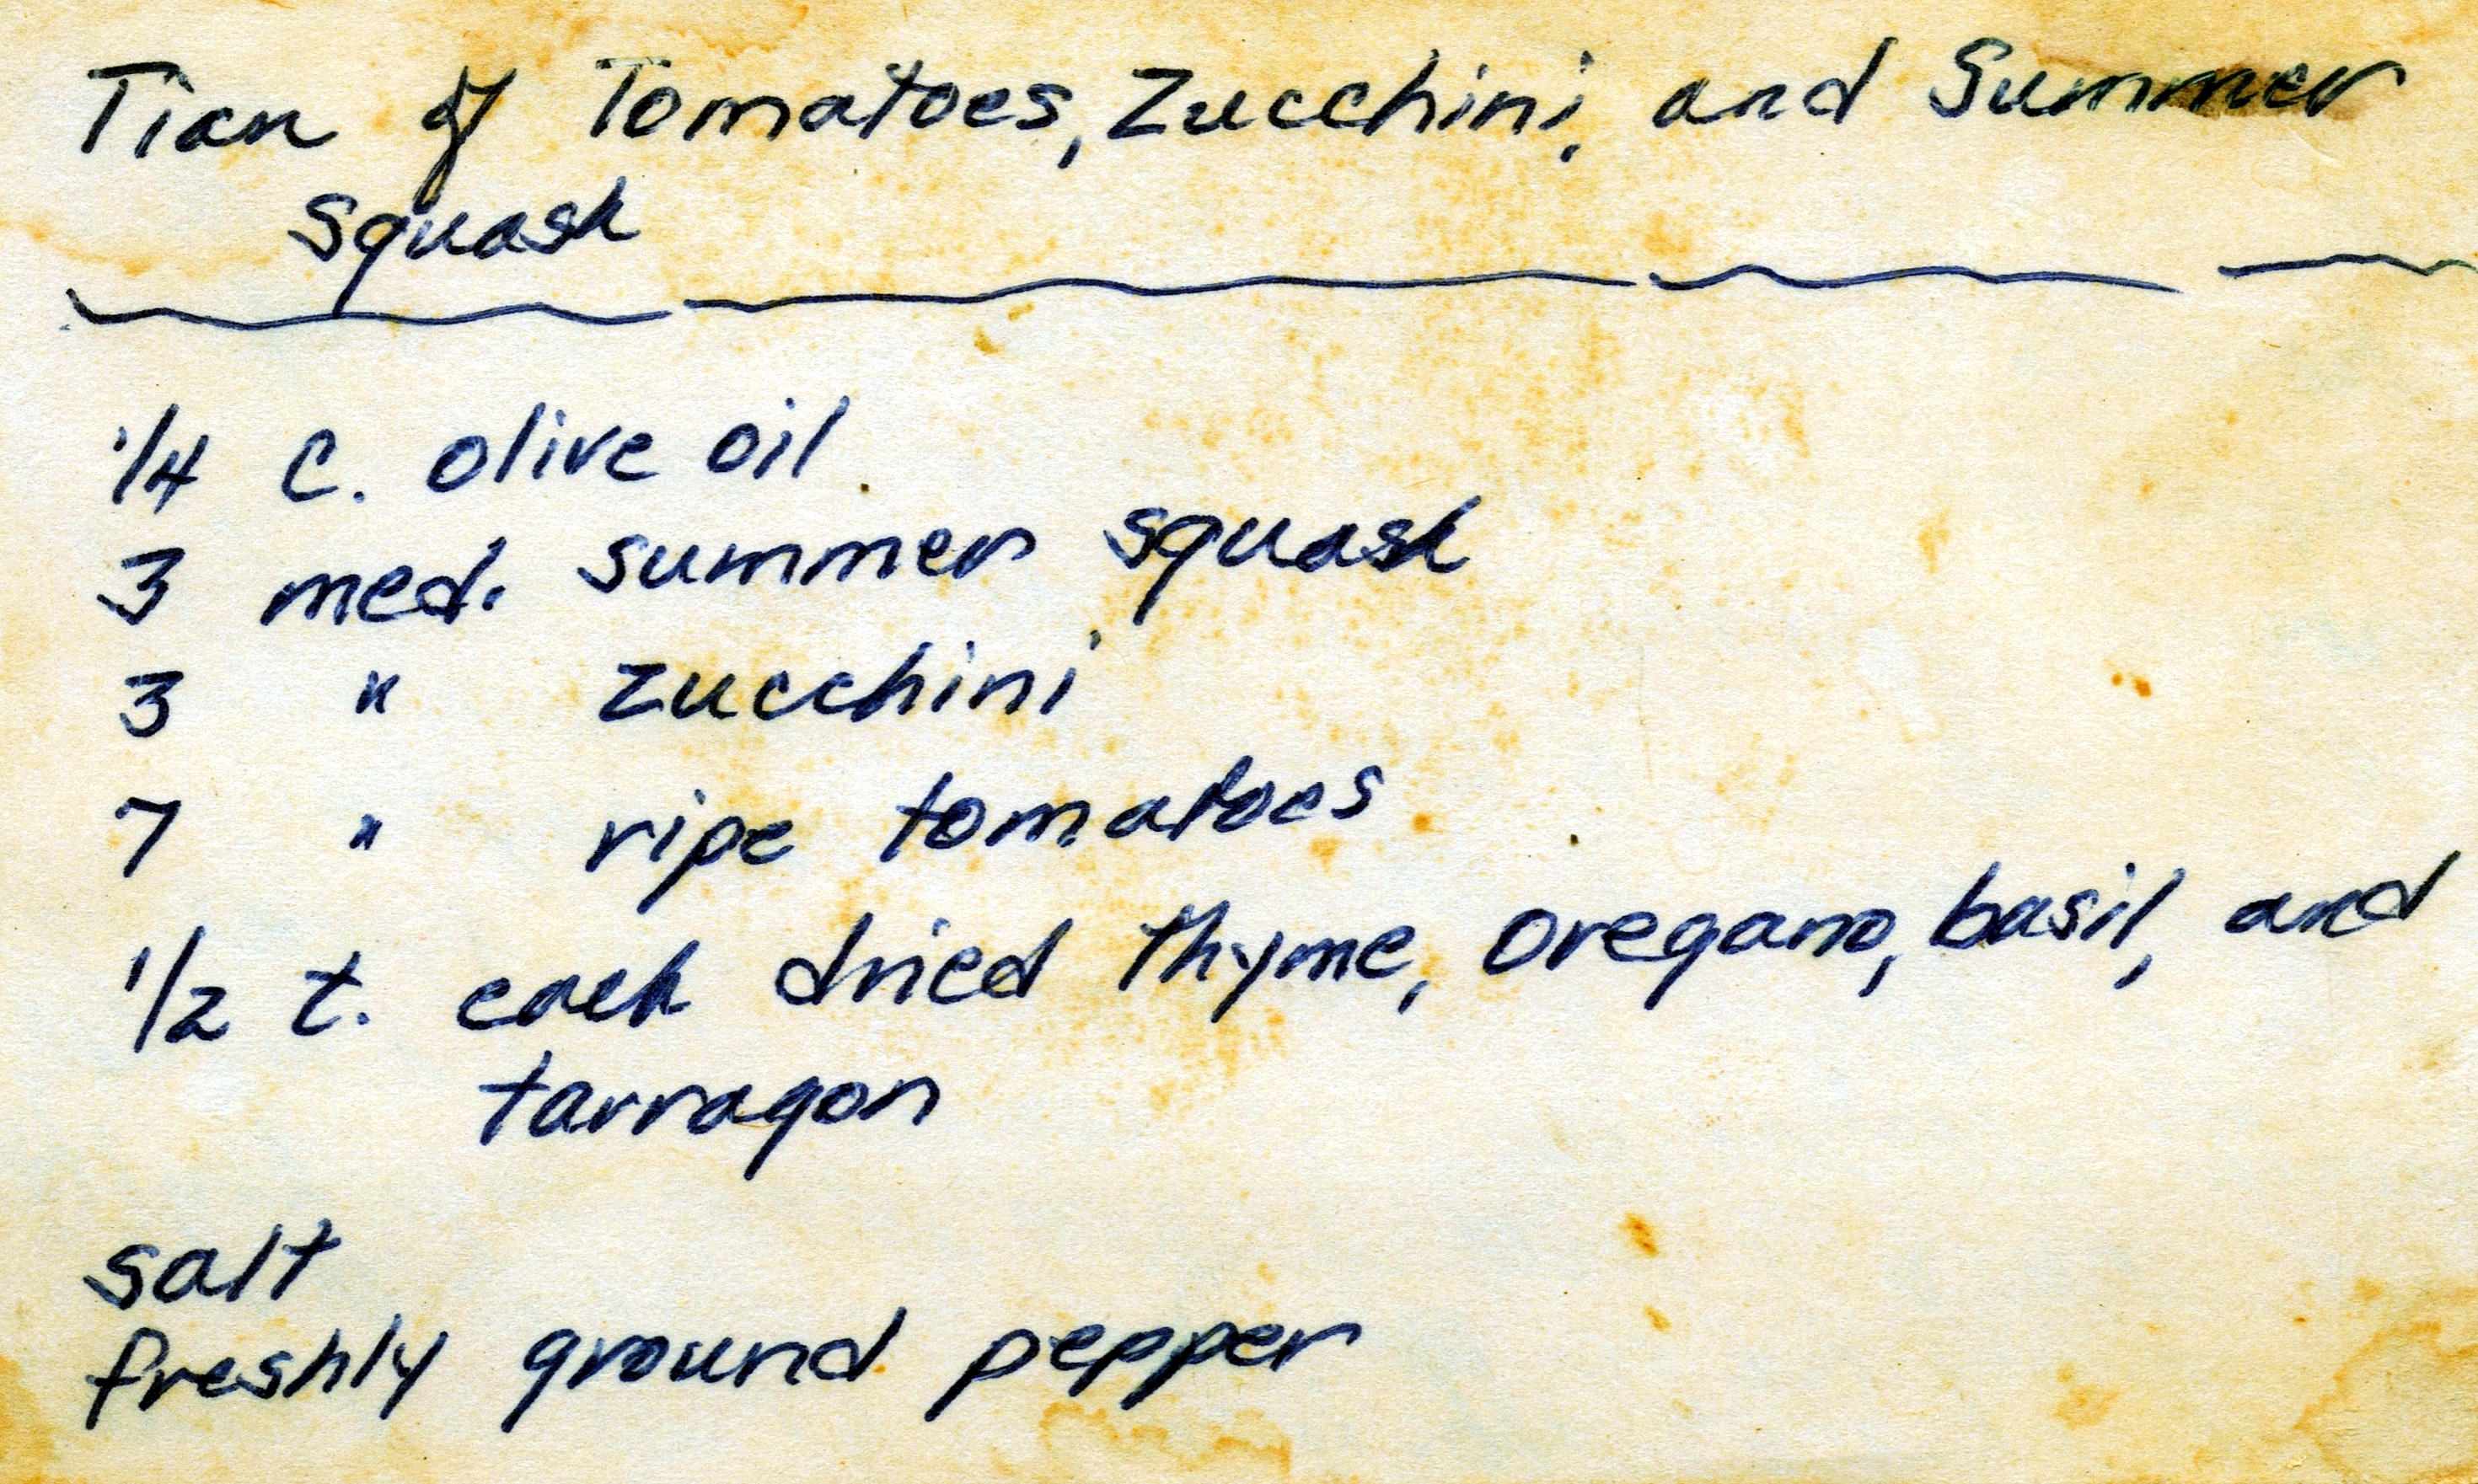 Tian of Tomatoes, Zucchini, and Summer
Squash
1/4 c. olive oil
3 med. summer squash
3 " zucchini
7 " ripe tomatoes
1/2 t. each dried thyme, oregano, basil, and
tarragon
salt
freshly ground pepper